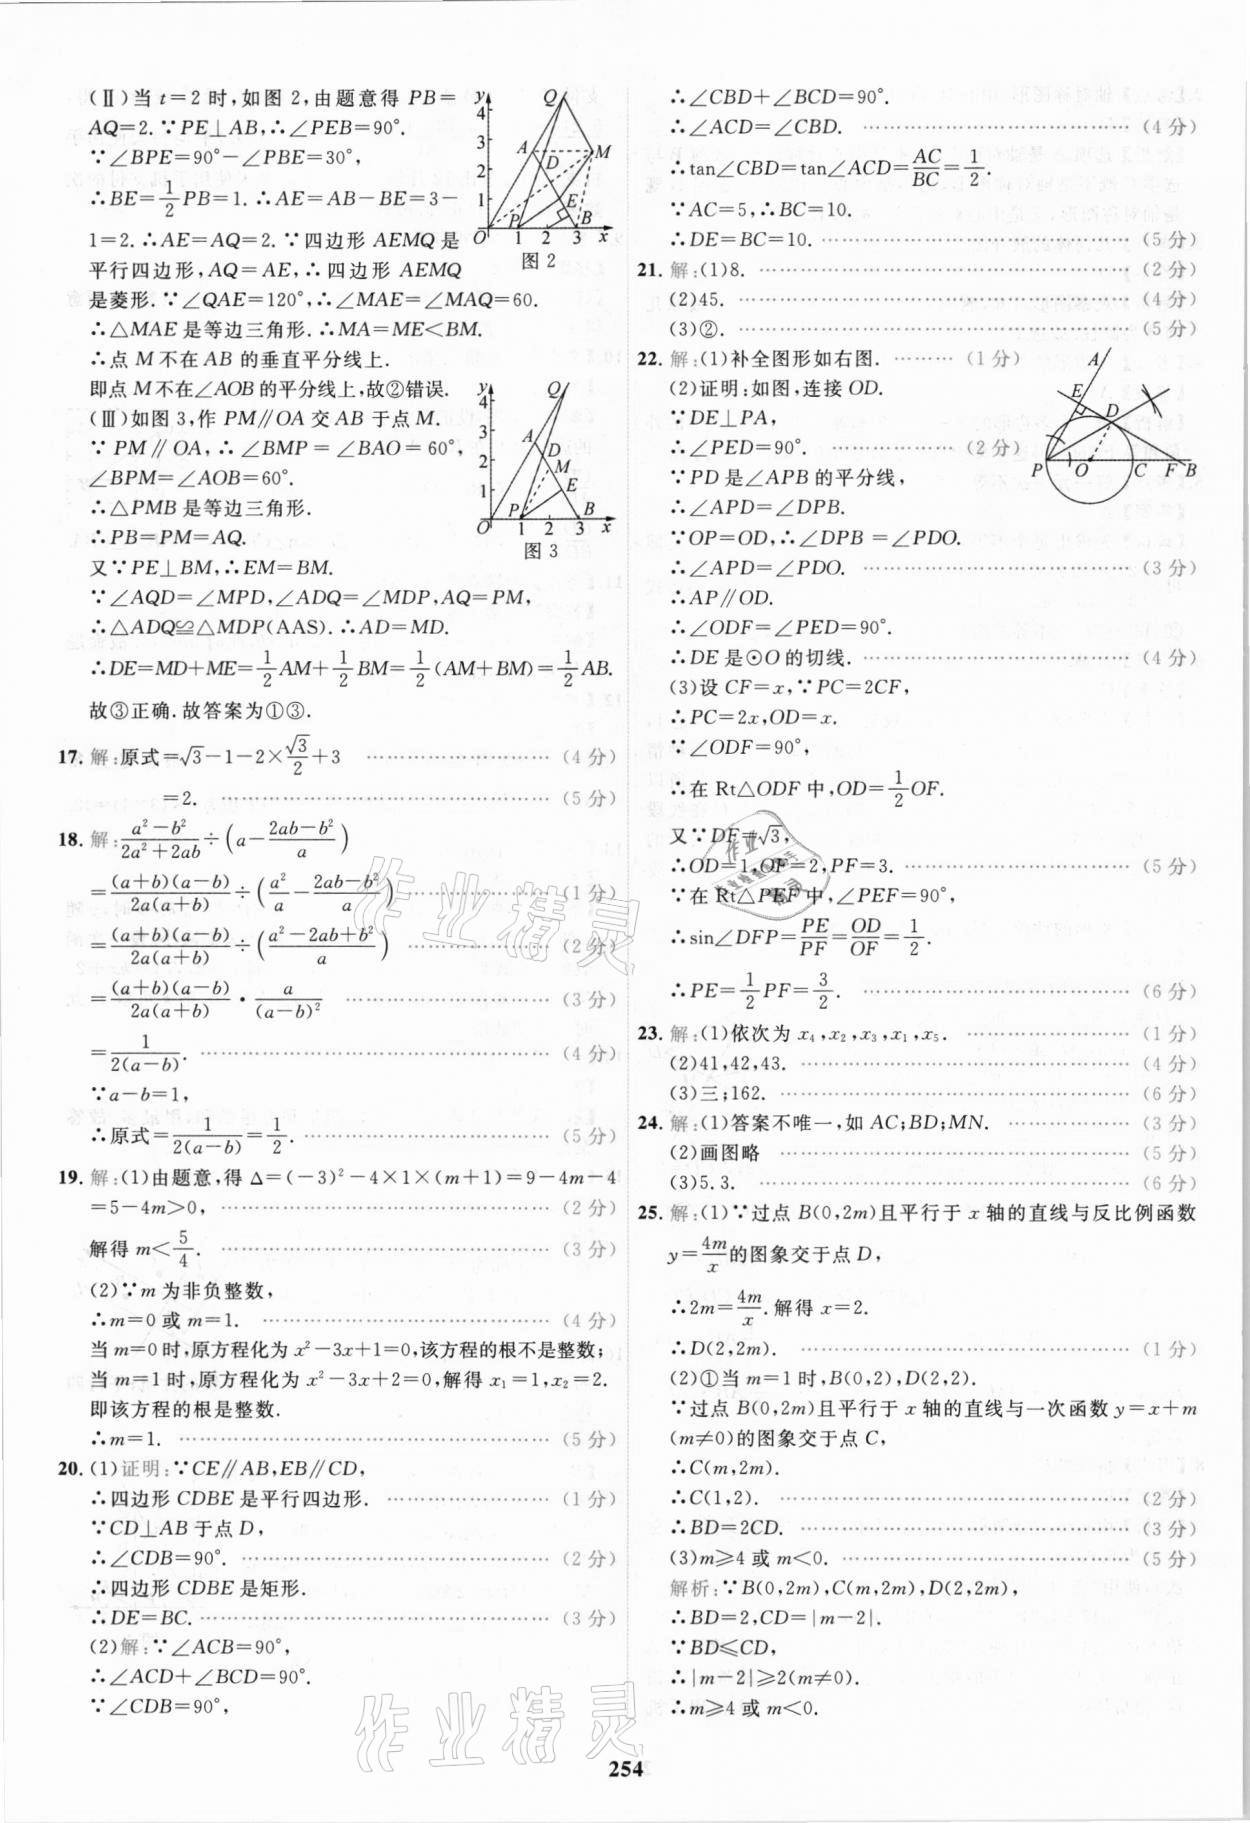 (Ⅱ)当 t=2 时,如图 2,由题意得 PB=
AQ=2.∵PE⊥AB,∴∠PEB=90°.
∵∠BPE=90°-∠PBE=30°,
∴BE=1/2PB=1.∴AE=AB-BE=3-
1=2.∴AE=AQ=2.∵四边形 AEMQ 是
平行四边形,AQ=AE,∴四边形 AEMQ
是菱形.∵∠QAE=120°,∴∠MAE=∠MAQ=60.
∴△MAE 是等边三角形.∴MA=ME<BM.
∴点 M 不在 AB 的垂直平分线上.
即点 M 不在∠AOB 的平分线上,故②错误.
(Ⅲ)如图 3,作 PM∥OA 交 AB 于点 M.
∵PM∥OA,∴∠BMP=∠BAO=60°,
∠BPM=∠BAO=60°.
∴△PMB 是等边三角形.
∴PB=PM=AQ.
又∵PE⊥BM,∴EM=BM.
∵∠AQD=∠MPD,∠ADQ=∠MDP,AQ=PM,
∴△ADQ≌△MDP(AAS).∴AD=MD.
∴DE=MD+ME=1/2AM+1/2BM=1/2(AM+BM)=1/2AB.
故③正确.故答案为①③.
y 4 3 2 1 O 1 2 3 x Q A D M E P B
图 2
y 4 3 2 1 O 1 2 3 x Q A D M E P B
图 3
17. 解:原式=√3-1-2×√3/2+3 ……………… (4 分)
=2. ……………… (5 分)
18. 解:(a²-b²)/(2a²+2ab)÷(a-(2ab-b²)/a)
=(a+b)(a-b)/2a(a+b)÷(a²/a-(2ab-b²)/a) ……… (1 分)
=(a+b)(a-b)/2a(a+b)÷((a²-2ab+b²)/a) ……… (2 分)
=(a+b)(a-b)/2a(a+b)·a/(a-b)² ……… (3 分)
=1/2(a-b). ……… (4 分)
∵a-b=1,
∴原式=1/2(a-b)=1/2. ……… (5 分)
19. 解:(1)由题意,得 Δ=(-3)²-4×1×(m+1)=9-4m-4
=5-4m>0, ……… (2 分)
解得 m<5/4. ……… (3 分)
(2)∵m 为非负整数,
∴m=0 或 m=1. ……… (4 分)
当 m=0 时,原方程化为 x²-3x+1=0,该方程的根不是整数;
当 m=1 时,原方程化为 x²-3x+2=0,解得 x₁=1,x₂=2.
即该方程的根是整数.
∴m=1. ……… (5 分)
20. (1)证明:∵CE∥AB,EB∥CD,
∴四边形 CDBE 是平行四边形. ……… (1 分)
∵CD⊥AB 于点 D,
∴∠CDB=90°. ……… (2 分)
∴四边形 CDBE 是矩形.
∴DE=BC. ……… (3 分)
(2)解:∵∠ACB=90°,
∴∠ACD+∠BCD=90°.
∵∠CDB=90°,
∴∠CBD+∠BCD=90°.
∴∠ACD=∠CBD. ……… (4 分)
∴tan∠CBD=tan∠ACD=AC/BC=1/2.
∵AC=5,∴BC=10.
∴DE=BC=10. ……… (5 分)
21. 解:(1)8. ……… (2 分)
(2)45. ……… (4 分)
(3)②. ……… (5 分)
22. 解:(1)补全图形如右图. ……… (1 分)
(2)证明:如图,连接 OD.
∵DE⊥PA,
∴∠PED=90°. ……… (2 分)
∵PD 是∠APB 的平分线,
∴∠APD=∠DPB.
∵OP=OD,∴∠DPB=∠PDO.
∴∠APD=∠PDO. ……… (3 分)
∴AP∥OD.
∴∠ODF=∠PED=90°.
∴DE 是⊙O 的切线. ……… (4 分)
A E D P O C F B
(3)设 CF=x,∵PC=2CF,
∴PC=2x,OD=x.
∵∠ODF=90°,
∴在 Rt△ODF 中,OD=1/2OF.
又∵DF=√3,
∴OD=1,OF=2,PF=3. ……… (5 分)
∵在 Rt△PEF 中,∠PEF=90°,
∴sin∠DFP=PE/PF=OD/OF=1/2.
∴PE=1/2PF=3/2. ……… (6 分)
23. 解:(1)依次为 x₄,x₂,x₃,x₁,x₅. ……… (1 分)
(2)41,42,43. ……… (4 分)
(3)三;162. ……… (6 分)
24. 解:(1)答案不唯一,如 AC;BD;MN. ……… (3 分)
(2)画图略 ……… (5 分)
(3)5.3. ……… (6 分)
25. 解:(1)∵过点 B(0,2m)且平行于 x 轴的直线与反比例函数
y=4m/x的图象交于点 D,
∴2m=4m/x.解得 x=2.
∴D(2,2m). ……… (1 分)
(2)①当 m=1 时,B(0,2),D(2,2).
∵过点 B(0,2m)且平行于 x 轴的直线与一次函数 y=x+m
(m≠0)的图象交于点 C,
∴C(m,2m).
∴C(1,2). ……… (2 分)
∴BD=2CD. ……… (3 分)
(3)m≥4 或 m<0. ……… (5 分)
解析:∵B(0,2m),C(m,2m),D(2,2m),
∴BD=2,CD=|m-2|.
∵BD≤CD,
∴|m-2|≥2(m≠0).
∴m≥4 或 m<0.
作业精灵
作业精灵
254